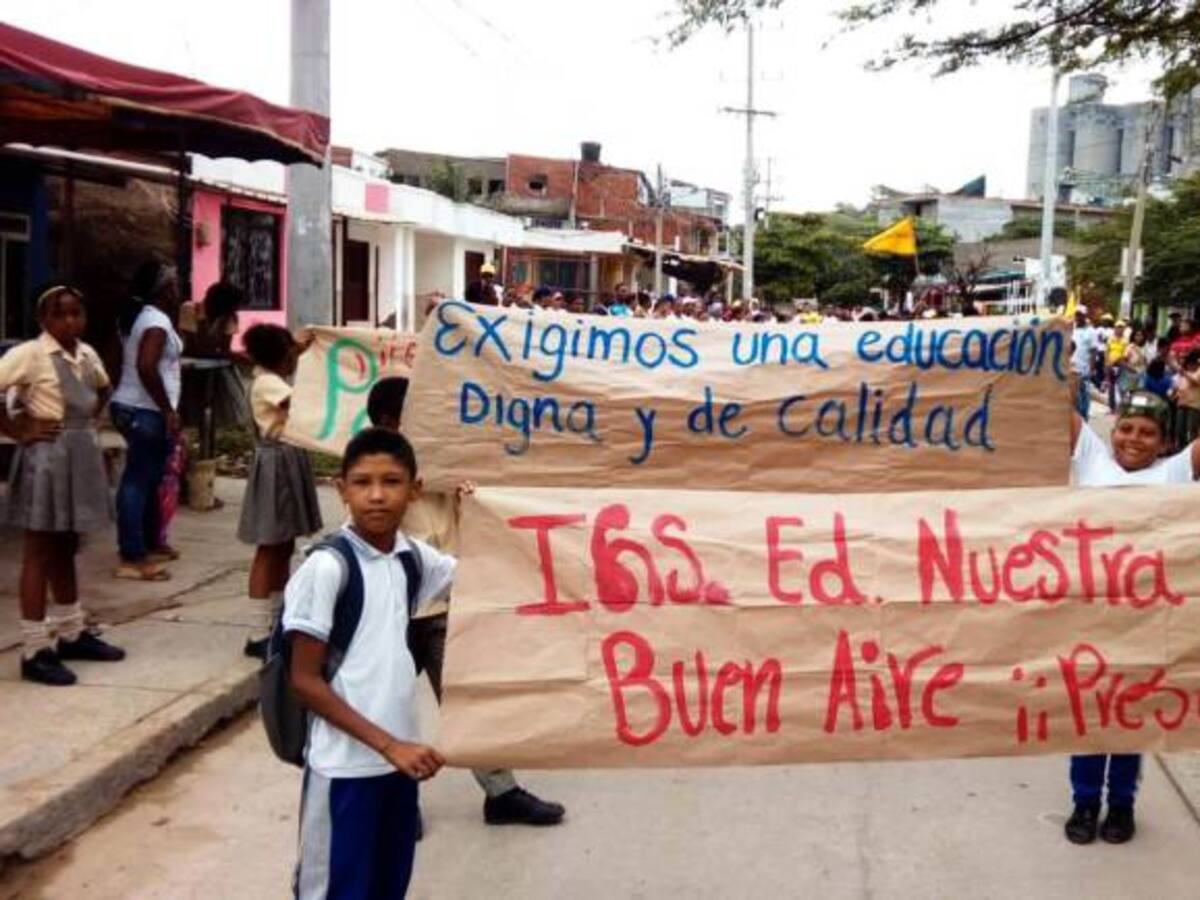 Exigimos una educación
Digna y de calidad
Ed. Nuestra
Buen Aire ¡¡Pres